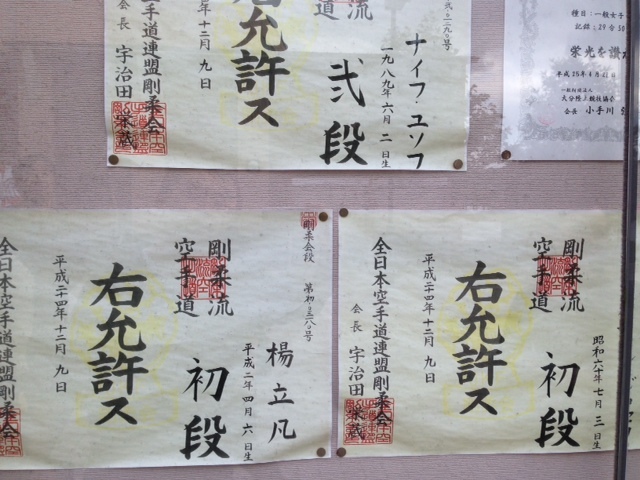 ナイフ・ユソフ
一九八九年六月二日生
弐段
流
道
右允許ス
年十二月九日
会長 宇治田栄蔵
道連盟剛柔会
種目:一般女子
栄光を讃
一般財団法人
大分陸上競技協
会長 小手川
剛柔会段
楊立凡
平成二年四月六日生
初段
剛柔流
空手道
右允許ス
平成二十四年十二月九日
全日本空手道連盟剛柔会
昭和六十年七月三日生
初段
剛柔流
空手道
右允許ス
平成二十四年十二月九日
全日本空手道連盟剛柔会
会長 宇治田栄蔵